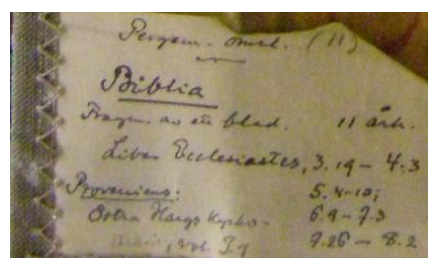 Pergam. omsl. (11)
Biblia
Fragm. av ett blad. 11 årh.
Liber Ecclesiastes, 3.19 – 4.3
Proveniens: 5.4-10;
Östra Hargs Kyrko- 6.9 – 7.3
7.26 – 8.2